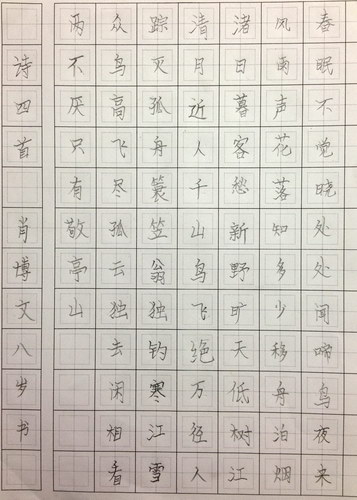 春眠不觉晓处处闻啼鸟夜来
风雨声花落知多少移舟泊烟
渚日暮客愁新野旷天低树江
清月近人千山鸟飞绝万径人
踪灭孤舟蓑笠翁独钓寒江雪
众鸟高飞尽孤云独去闲相看
两不厌只有敬亭山
诗四首肖博文八岁书